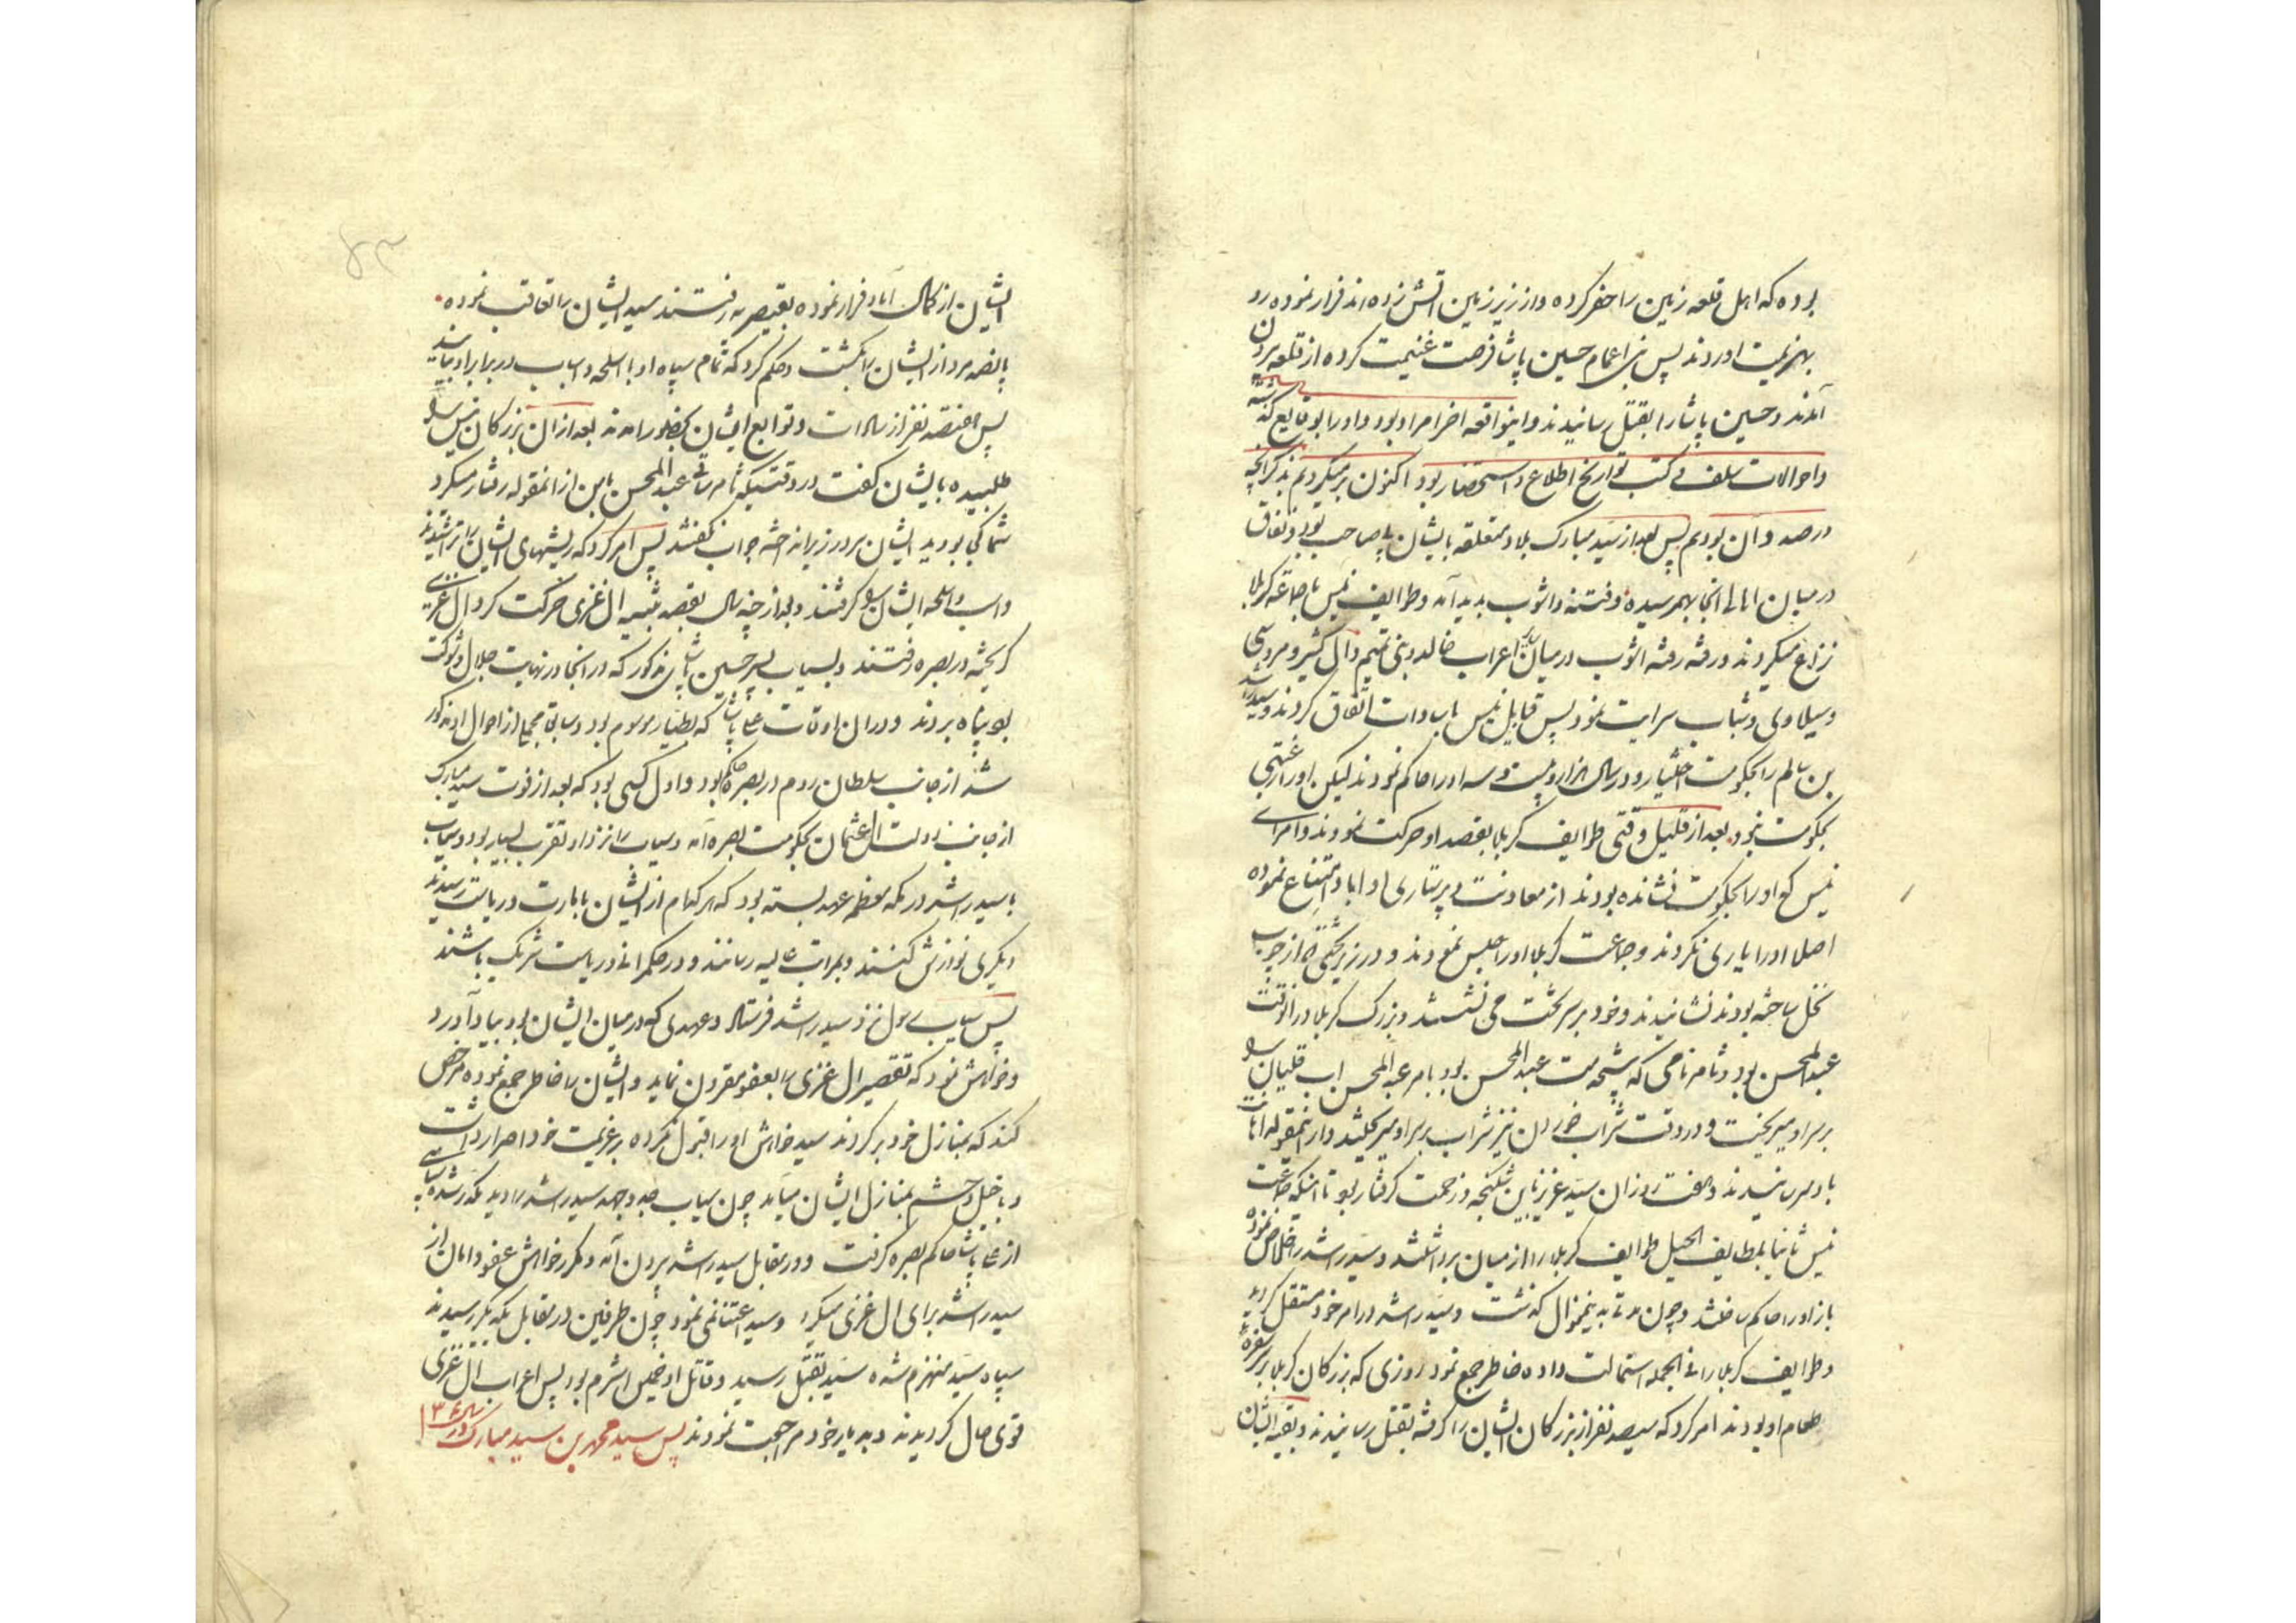 بوده که اهل قلعه زمین را حفر کرده و از زیر زمین اتش زده اند فرار نموده رو
بهزیمت اوردند پس بنی اعمام حسین پاشا فرصت غنیمت کرده از قلعه بیرون
آمدند و حسین پاشا را بقتل رسانیدند و اینواقعه اخر امر او بود و او را بوقایع گذشته
و احوالات سلف و کتب تواریخ اطلاع و استحضار بود اکنون برمیگردیم بذکر آنچه
در صدد آن بودیم پس بعد از سید مبارک بلاد متعلقه بایشان بی صاحب بود و نفاق
در میان اهالی انجا بهمرسیده و فتنه و اشوب پدید آمد و طوایف نیس با جماعه کربلا
نزاع میکردند و رفته رفته اشوب در میان اعراب خالد و بنی تمیم و ال کثیر و مردسی
و سیلاوی و شباب سرایت نمود پس قبایل نیس با سادات اتفاق کردند و سید راشد
بن سالم را بحکومت اختیار و در سال هزار و بیست و سه او را حاکم نمودند لیکن او را رغبتی
بحکومت نبود بعد از قلیل وقتی طوایف کربلا بقصد او حرکت نمودند و امرای
نیس که او را بحکومت نشانده بودند از معاونت و پرستاری او ابا و امتناع نموده
اصلا او را یاری نکردند و جماعت کربلا او را حبس نمودند و در زیر تختی که از چوب
نخل ساخته بودند نشانیدند و خود بر سر تخت می نشستند و بزرگ کربلا در انوقت
عبدالمحسن بود و ثامر نامی که پیشخدمت عبدالمحسن بود بامر عبدالمحسن اب قلیان را
بر سر او میریخت و در وقت شراب خوردن نیز شراب بر سر او میریختند و از اینمقوله اهانت
باو میرسانیدند و هفت روز ان سید عزیز باین شکنجه و زحمت گرفتار بود تا اینکه جماعت
نیس ثانیا بلطایف الحیل طوایف کربلا را از میان برداشتند و سید راشد را خلاص نموده
باز او را حاکم ساختند و چون مدتی به اینمنوال گذشت و سید راشد در امر خود مستقل گردید
و طوایف کربلا را فی الجمله استمالت داده خاطر جمع نمود روزی که بزرگان کربلا بر سفره
طعام او بودند امر کرد که سیصد نفر از بزرگان ایشان را گرفته بقتل رسانیدند و بقیه ایشان
ایشان از کمال آباد فرار نموده بقیصریه رفتند سید ایشان را تعاقب نموده
پانصد مرد از ایشان را بکشت و حکم کرد که تمام سپاه او با اسلحه و اسباب در برابر او بیایند
پس هفتصد نفر از سادات و توابع ایشان بحضور امدند بعد از ان بزرگان نیس را
طلبیده بایشان گفت در وقتیکه ثامر ساقی عبدالمحسن با من از انمقوله رفتار میکرد
شما کجا بودید ایشان سر در زیر انداخته جواب نگفتند پس امر کرد که ریشهای ایشان را تراشیدند
و اسب و اسلحه ایشان را گرفتند و بعد از چند سال بقصد تنبیه ال غزی حرکت کرد ال غزی
گریخته در بصره رفتند و بسیاب پسر حسین پاشای مذکور که در انجا در نهایت جلال و شوکت
بود پناه بردند و در ان اوقات علی پاشا که بطیار موسوم بود و سابق مجملی از احوال او مذکور
شد از جانب سلطان روم در بصره حاکم بود و اول کسی بود که بعد از فوت سید مبارک
از جانب دولت ال عثمان بحکومت بصره آمد و سیاب را نزد او تقرب بسیار بود و سیاب
با سید راشد در مکه معظمه عهد بسته بود که هر کدام از ایشان بامارت و ریاست رسیدند
دیگری نوازش کنند و بمراتب عالیه رسانند و در حکمرانی و ریاست شریک باشند
پس سیاب رسول نزد سید راشد فرستاد و عهدی که در میان ایشان بود بیاد آورد
و خواهش نمود که تقصیر ال غزی را بعفو مقرون نماید و ایشان را خاطر جمع نموده مرخص
کند که بمنازل خود برگردند سید خواهش او را قبول نکرده بر عزیمت خود اصرار داشت
و با خیل و حشم بمنازل ایشان میآمد چون سیاب جد و جهد سید راشد را دید
از علی پاشا حاکم بصره گرفت و در مقابل سید راشد بیرون آمد و مکرر خواهش عفو و امان از
سید راشد برای ال غزی میکرد و سید اعتنا نمی نمود چون طرفین در مقابل یکدیگر رسیدند
سپاه سید منهزم شده سید بقتل رسید و قاتل او اشرم بود پس اعراب ال غزی
قوی حال گردیدند و بدیار خود مراجعت نمودند پس سید محمد بن سید مبارک در سال